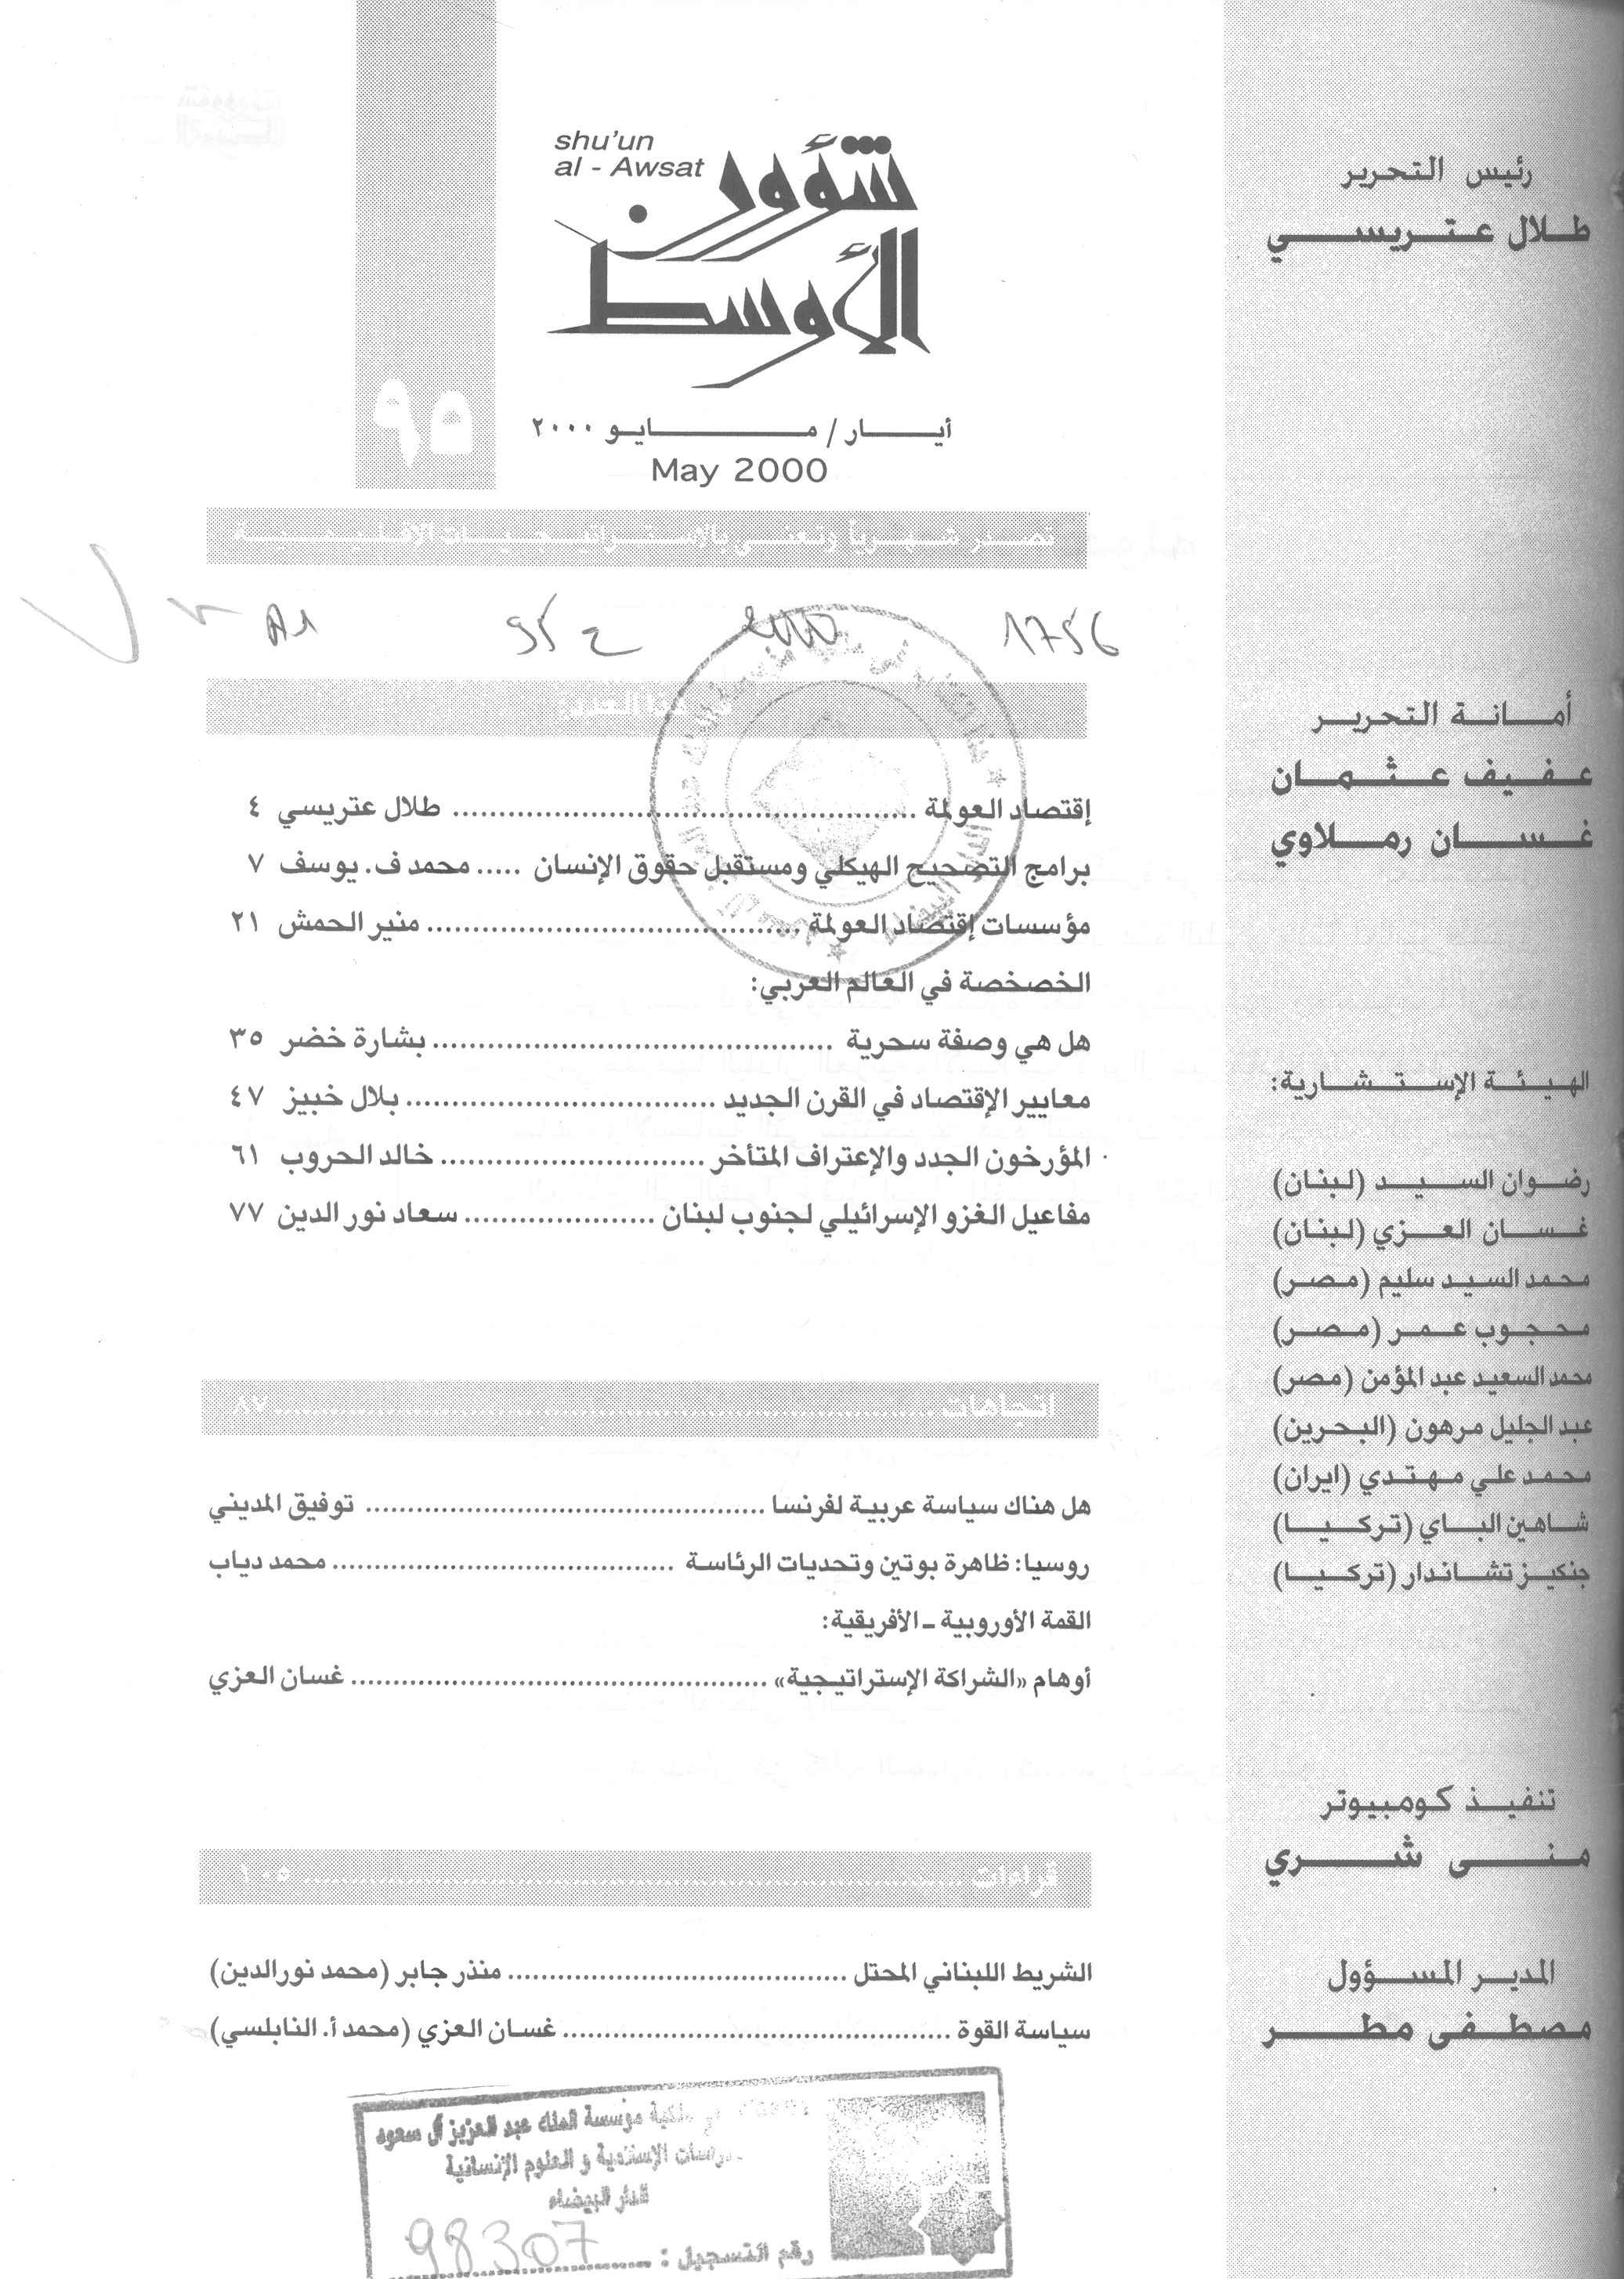 shu'un
al - Awsat
شؤون
الأوسط
٩٥
أيار / مايو ٢٠٠٠
May 2000
تصدر شهرياً وتعنى بالاستراتيجيات الاقليمية
A1 95 2000 1756
في هذا العدد
إقتصاد العولمة ........ طلال عتريسي ٤
برامج التصحيح الهيكلي ومستقبل حقوق الإنسان ..... محمد ف. يوسف ٧
مؤسسات إقتصاد العولمة ........ منير الحمش ٢١
الخصخصة في العالم العربي:
هل هي وصفة سحرية ........ بشارة خضر ٣٥
معايير الإقتصاد في القرن الجديد ........ بلال خبيز ٤٧
المؤرخون الجدد والإعتراف المتأخر ........ خالد الحروب ٦١
مفاعيل الغزو الإسرائيلي لجنوب لبنان ........ سعاد نور الدين ٧٧
اتجاهات ........ ٨٧
هل هناك سياسة عربية لفرنسا ........ توفيق المديني
روسيا: ظاهرة بوتين وتحديات الرئاسة ........ محمد دياب
القمة الأوروبية ـ الأفريقية:
أوهام «الشراكة الإستراتيجية» ........ غسان العزي
قراءات ........ ١٠٥
الشريط اللبناني المحتل ........ منذر جابر (محمد نورالدين)
سياسة القوة ........ غسان العزي (محمد أ. النابلسي)
ملكية مؤسسة الملك عبد العزيز آل سعود
الإسلامية و العلوم الإنسانية
الدار البيضاء
رقم التسجيل : 98307
رئيس التحرير
طلال عتريسي
أمانة التحرير
عفيف عثمان
غسان رملاوي
الهيئة الإستشارية:
رضوان السيد (لبنان)
غسان العزي (لبنان)
محمد السيد سليم (مصر)
محجوب عمر (مصر)
محمد السعيد عبد المؤمن (مصر)
عبد الجليل مرهون (البحرين)
محمد علي مهتدي (ايران)
شاهين الباي (تركيا)
جنكيز تشاندار (تركيا)
تنفيذ كومبيوتر
منى شري
المدير المسؤول
مصطفى مطر